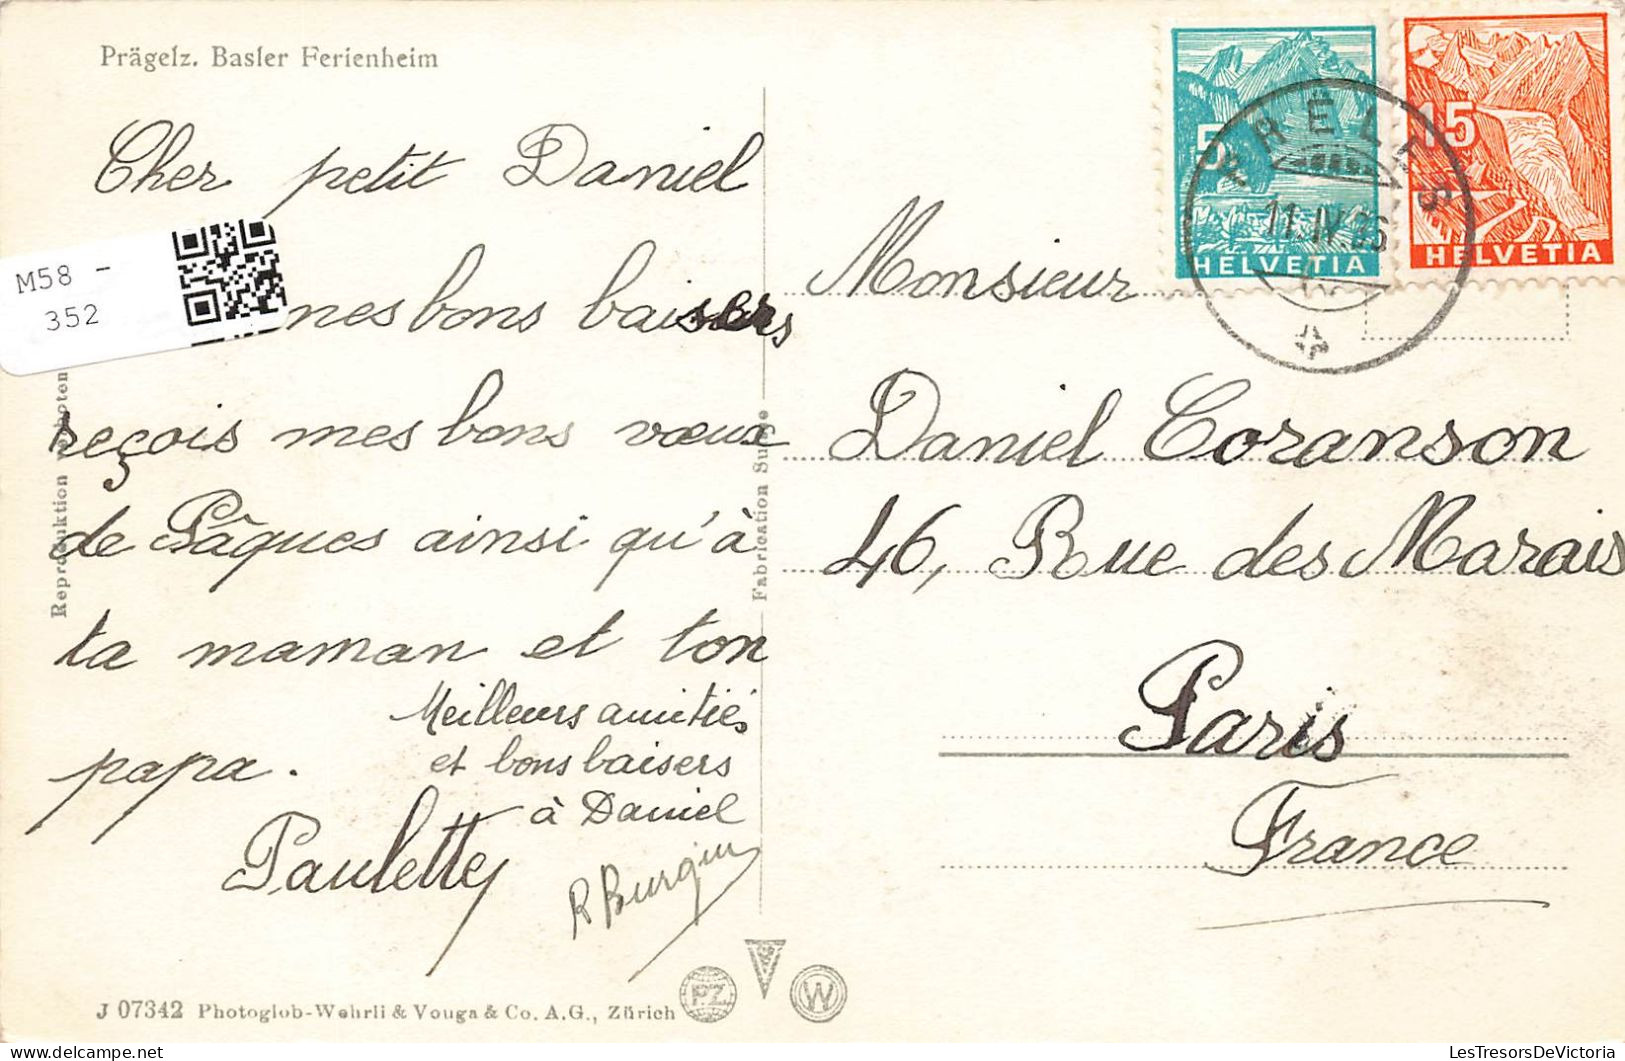 Prägelz. Basler Ferienheim
Cher petit Daniel
mes bons baisers
reçois mes bons vœux
de Pâques ainsi qu'à
ta maman et ton
papa.
Meilleurs amitiés
et bons baisers
à Daniel
Paulette
R Burgin
M58 -
352
Reproduktion
Fabrication
J 07342 Photoglob-Wehrli & Vouga & Co. A.G., Zürich
PZ
W
5
HELVETIA
15
HELVETIA
PRELES
11.IV.36
Monsieur
Daniel Coranson
46, Rue des Marais
Paris
France
LesTresorsDeVictoria